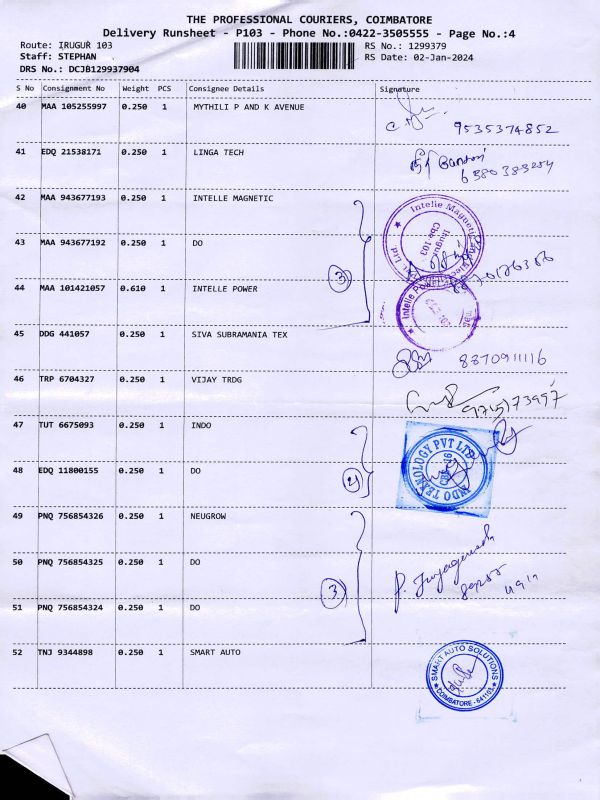 THE PROFESSIONAL COURIERS, COIMBATORE
Delivery Runsheet - P103 - Phone No.:0422-3505555 - Page No.:4
Route: IRUGUR 103
RS No.: 1299379
Staff: STEPHAN
RS Date: 02-Jan-2024
DRS No.: DCJB129937904
S No Consignment No Weight PCS Consignee Details Signature
40 MAA 105255997 0.250 1 MYTHILI P AND K AVENUE
9535374852
41 EDQ 21538171 0.250 1 LINGA TECH
6380383254
42 MAA 943677193 0.250 1 INTELLE MAGNETIC
Intelle Magnetic
Irugur
Cbe 103
43 MAA 943677192 0.250 1 DO
3
44 MAA 101421057 0.610 1 INTELLE POWER
Intelle Power
45 DDG 441057 0.250 1 SIVA SUBRAMANIA TEX
8870911116
46 TRP 6704327 0.250 1 VIJAY TRDG
9715173997
47 TUT 6675093 0.250 1 INDO
INDO TEKNOLOGY PVT LTD
48 EDQ 11800155 0.250 1 DO
49 PNQ 756854326 0.250 1 NEUGROW
50 PNQ 756854325 0.250 1 DO
3
51 PNQ 756854324 0.250 1 DO
52 TNJ 9344898 0.250 1 SMART AUTO
SMART AUTO SOLUTIONS
COIMBATORE - 641103